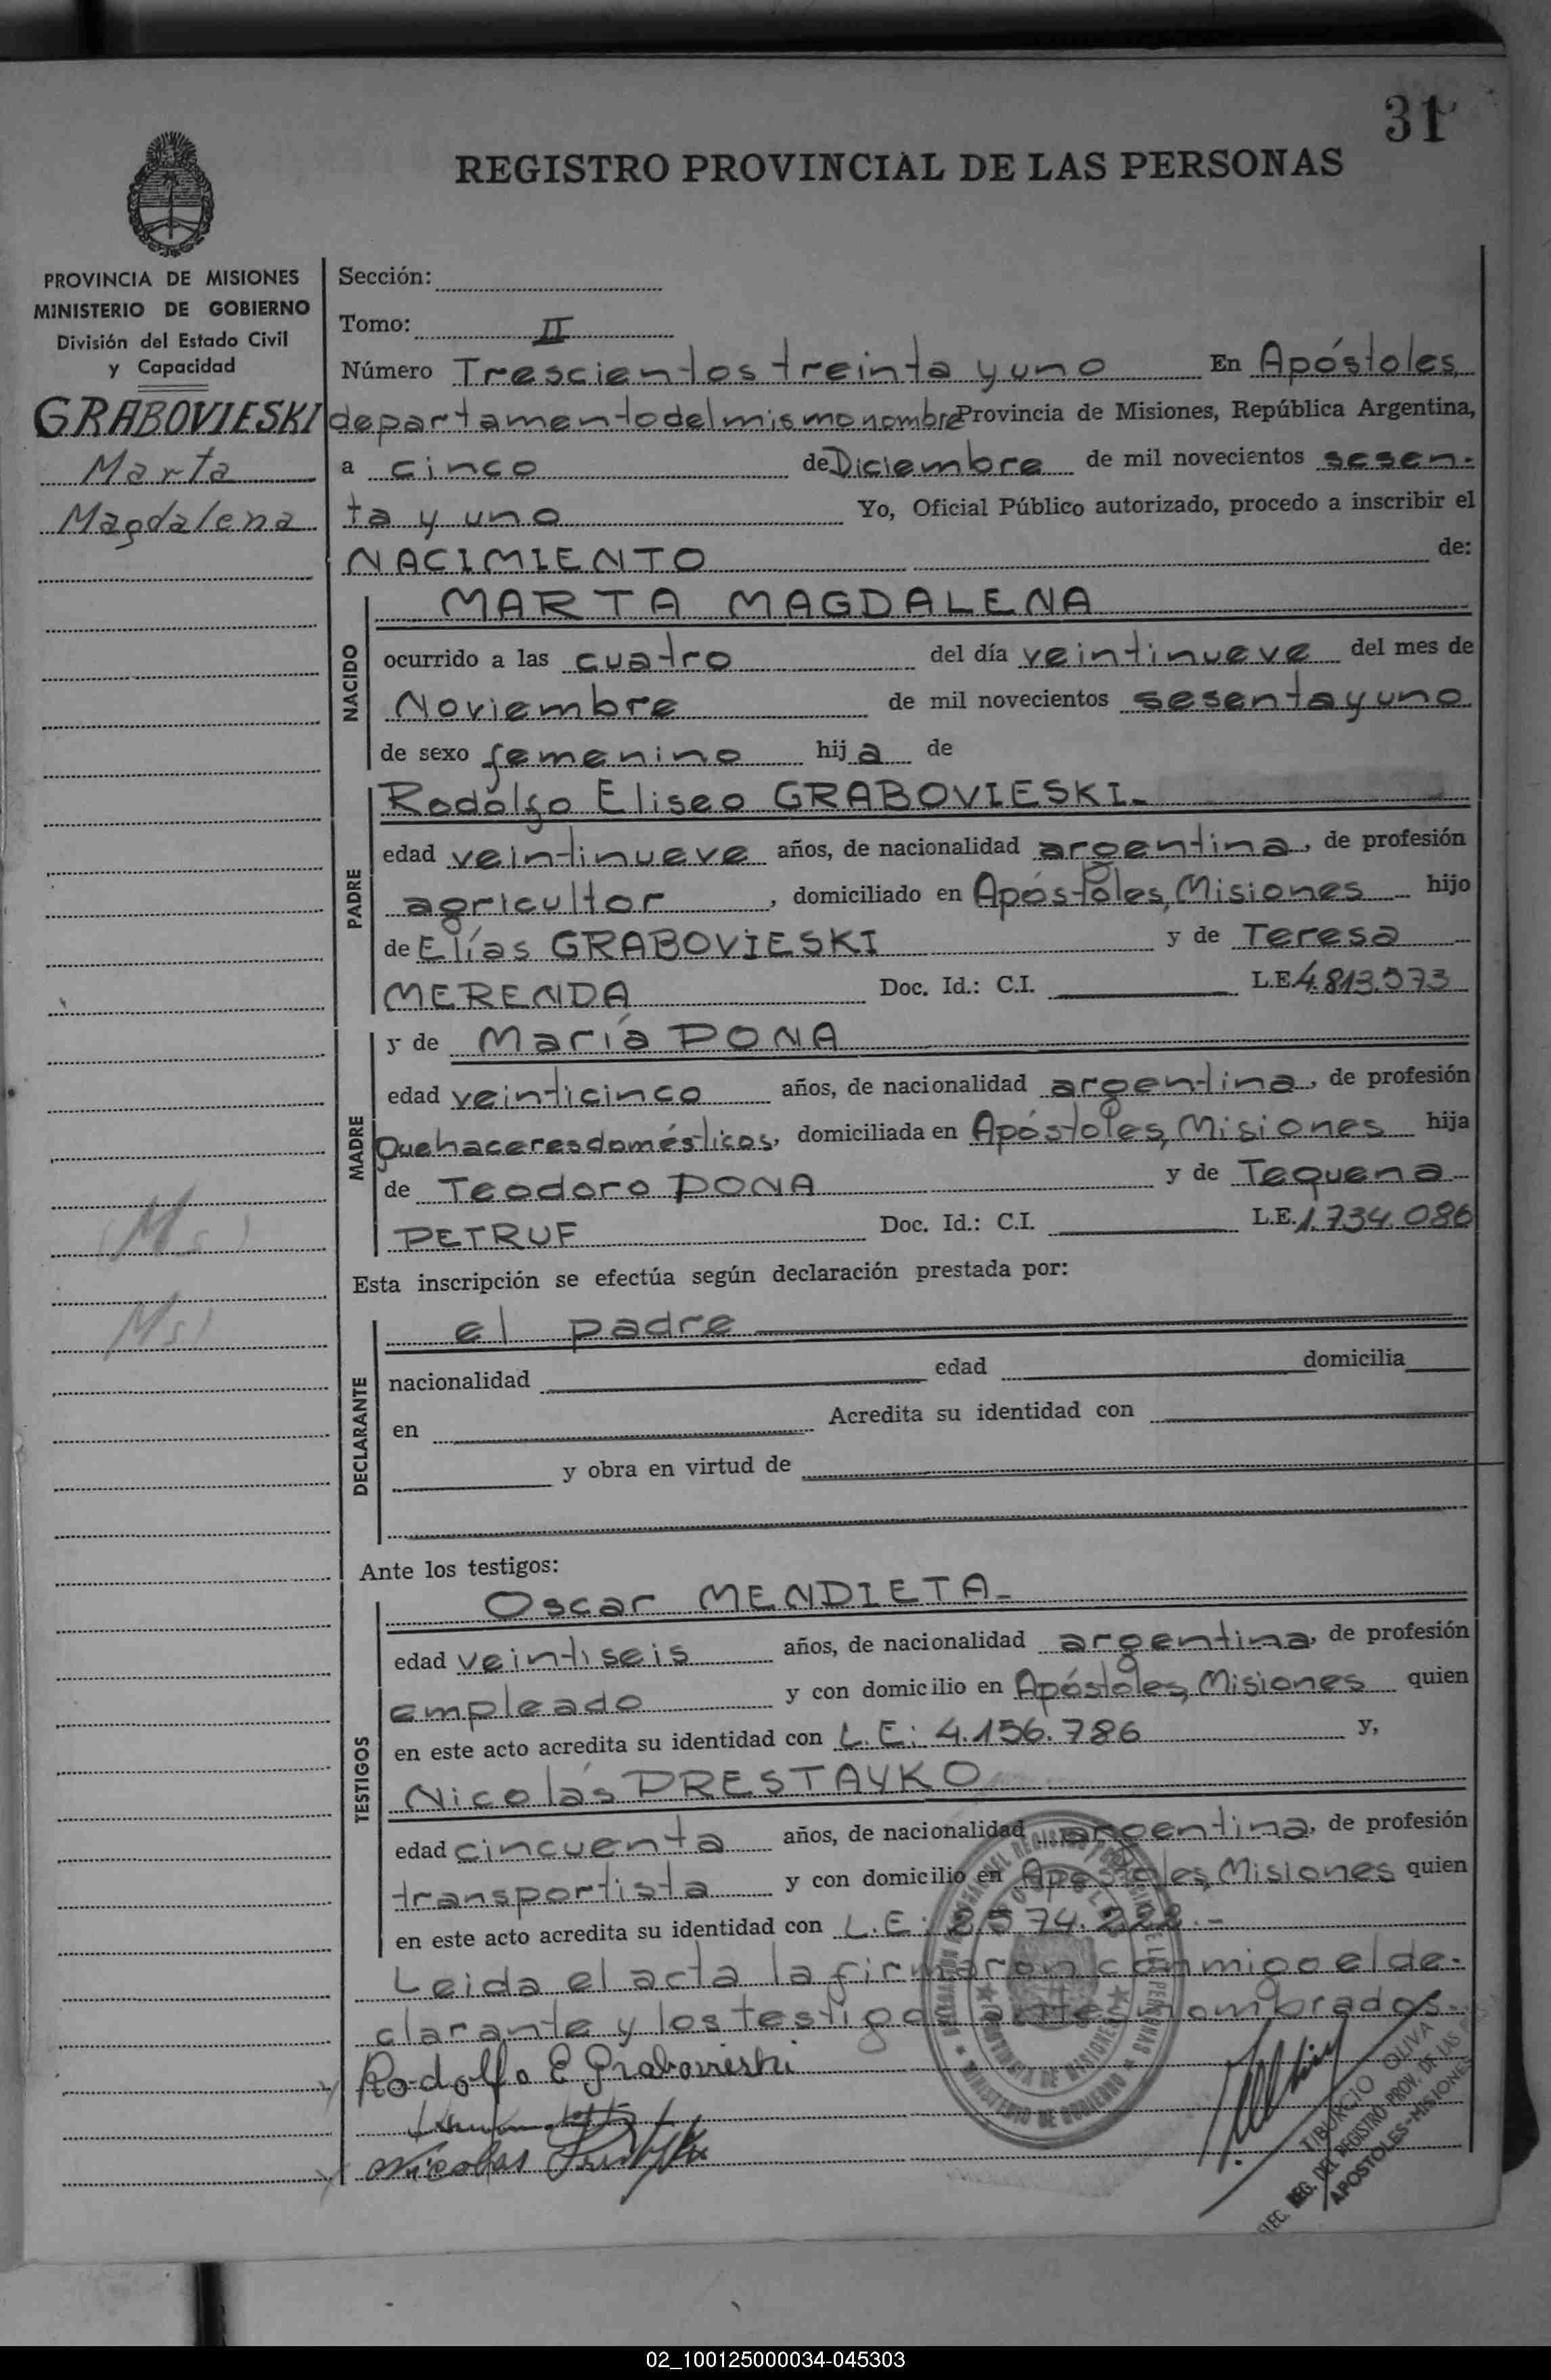 31
REGISTRO PROVINCIAL DE LAS PERSONAS
PROVINCIA DE MISIONES
MINISTERIO DE GOBIERNO
División del Estado Civil
y Capacidad
GRABOVIESKI
Marta
Magdalena
Sección:
Tomo: II
Número Trescientos treinta y uno En Apóstoles,
departamento del mismo nombre Provincia de Misiones, República Argentina,
a cinco de Diciembre de mil novecientos sesen-
ta y uno Yo, Oficial Público autorizado, procedo a inscribir el
NACIMIENTO de:
NACIDO
MARTA MAGDALENA
ocurrido a las cuatro del día veintinueve del mes de
Noviembre de mil novecientos sesenta y uno
de sexo femenino hija de
PADRE
Rodolfo Eliseo GRABOVIESKI.
edad veintinueve años, de nacionalidad argentina, de profesión
agricultor, domiciliado en Apóstoles, Misiones hijo
de Elías GRABOVIESKI y de Teresa
MERENDA Doc. Id.: C.I. L.E. 4.813.573
MADRE
y de María DONA
edad veinticinco años, de nacionalidad argentina, de profesión
Quehaceres domésticos, domiciliada en Apóstoles, Misiones hija
de Teodoro DONA y de Tequena
PETRUF Doc. Id.: C.I. L.E. 1.734.086
(Ms)
Ms)
Esta inscripción se efectúa según declaración prestada por:
DECLARANTE
el padre
nacionalidad edad domicilia
en Acredita su identidad con
y obra en virtud de
Ante los testigos:
TESTIGOS
Oscar MENDIETA-
edad veintiseis años, de nacionalidad argentina, de profesión
empleado y con domicilio en Apóstoles, Misiones quien
en este acto acredita su identidad con L.E: 4.156.786 y,
Nicolás PRESTAYKO
edad cincuenta años, de nacionalidad argentina, de profesión
transportista y con domicilio en Apóstoles, Misiones quien
en este acto acredita su identidad con L.E:
Leida el acta la firmaron conmigo el de-
clarante y los testigos antes nombrados.
Rodolfo E Grabovieski
Nicolas
TIBURCIO OLIVA
REG. DEL REGISTRO PROV. DE LAS
APOSTOLES-MISIONES
PROVINCIA DE MISIONES
MINISTERIO DE GOBIERNO
02_100125000034-045303